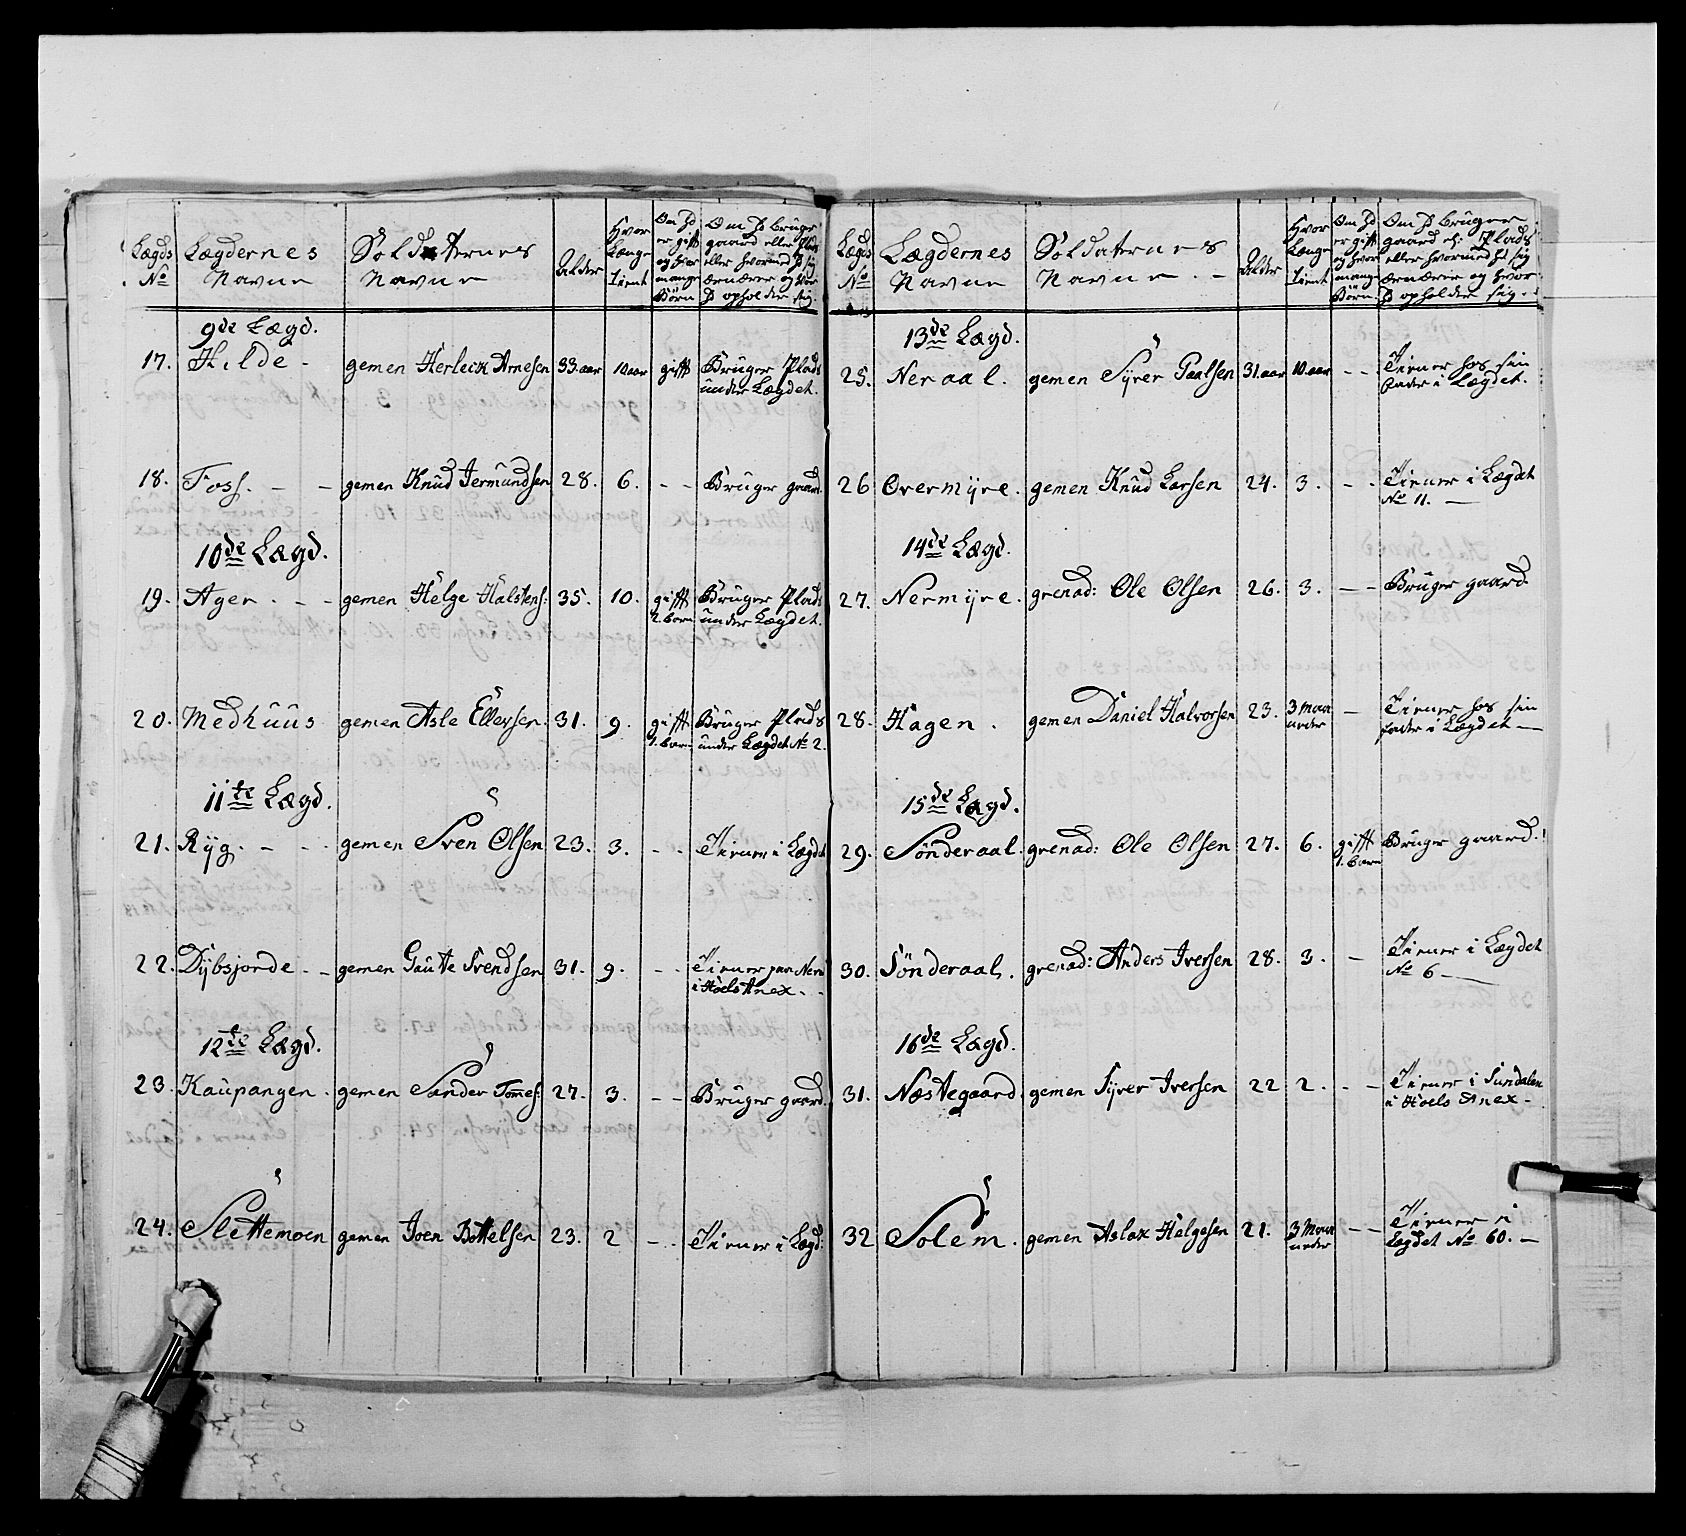 Lægds No | Lægdernes Navne | Soldaternes Navne | Alder | Hvor Længe Tient | Om Hd er gift og hvor mange Börn | Om Hd bruger gaard eller Plads eller hvormed Hd sig ernærer og hvor Hd opholder sig.
9de Lægd.
17. Hilde - gemen Herleck Arnesen 33. aar 10 aar gift Bruger Plads
under Lægdet.
18. Foss. - - gemen Knud Jermundsen 28. 6. - - Bruger gaard.
10de Lægd.
19. Ager. - - gemen Helge Halstens: 35. 10. gift Bruger Plads
2. barn under Lægdet.
20. Medhuus gemen Asle Ellevsen. 31. 9. gift Bruger Plads
1. barn under Lægdet No 2.
11te Lægd.
21. Ryg. - - - gemen Sven Olsen 23. 3. - - Tiener i Lægdet
22. Dybsjorde - - gemen Gaute Svendsen 31. 9. - - Tiener paa
i Hoels Anex. -
12te Lægd.
23. Kaupangen. gemen Sander Tomes: 27. 3. - - Bruger gaard.
24. Slettemoen gemen Joen Bottelsen 23. 2 - - Tiener i Lægd:
Lægds No | Lægdernes Navne | Soldaternes Navne. - | Alder | Hvor Længe Tient | Om Hd er gift og hvor mange Börn. | Om Hd bruger gaard el: Plads eller hvormed Hd sig ernærer og hvor Hd opholder sig. -
13de Lægd.
25. Neraal. gemen Syver Paalsen 31. aar 10. aar - - Tiener hos sin
fader i Lægdet.
26 Overmyre. gemen Knud Larsen 24. 3. - - Tiener i Lægdet
No 11. -
14de Lægd.
27. Nermyre. grenad: Ole Olsen 26. 3. - - Bruger gaard.
28. Hagen. gemen Daniel Halvorsen 23. 3 maan - Tiener hos sin
fader i Lægdet -
15de Lægd.
29. Sönderaal. grenad: Ole Olsen 27. 6. gift Bruger gaard.
1. barn
30. Sönderaal. grenad: Anders Iversen 28. 3. - Tiener i Lægdet
No 6 -
16de Lægd.
31. Næstegaard. gemen Syver Iversen 22 2. - - Tiener i Sundalen
i Hoels Anex -
32 Solem. gemen Aslak Helgesen 21. 3 Maan - - Tiener i
Lægdet No 60. -